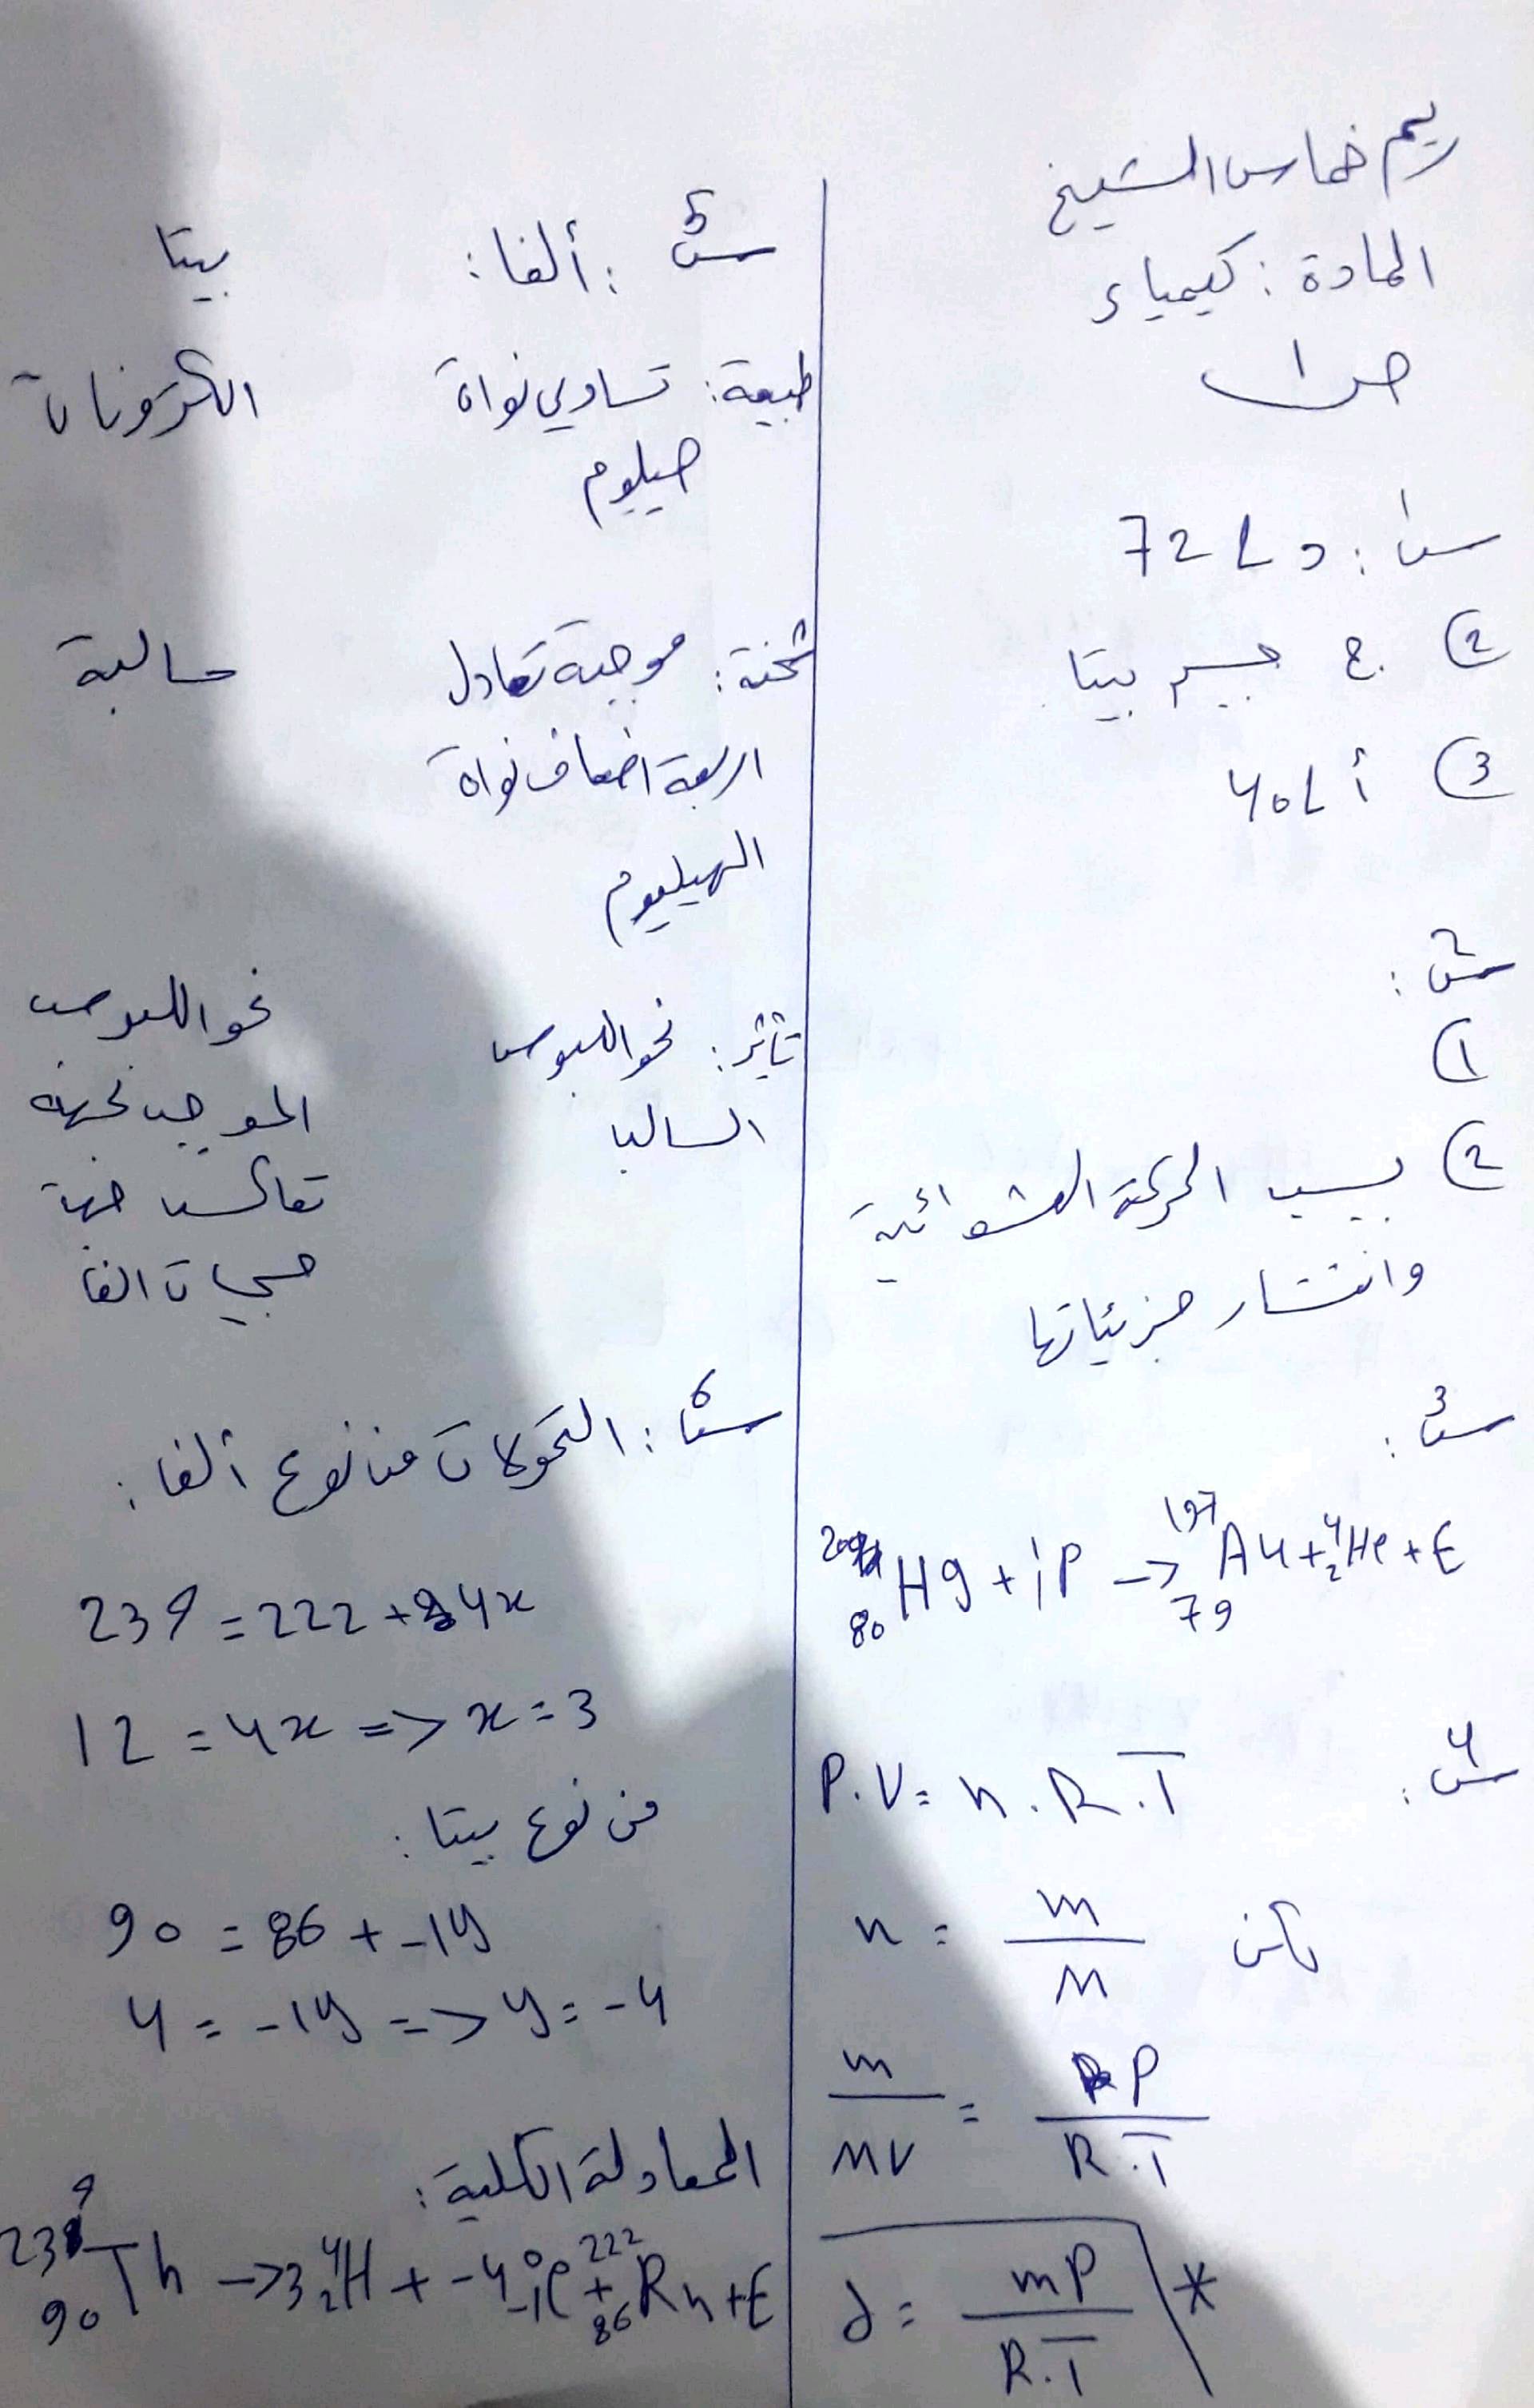 ريم خماس الشيخ
المادة: كيمياء
س١: د 72 L
② ج. جسيم بيتا
③ أ 40 L
س٢:
①
② بسبب الحركة العشوائية
وانتشار جزيئاتها
س3:
80 Hg + 1 1 P -> 197 79 Au + 4 2 He + E
س4:
P.V = n.R.T
n = m / M
m / MV = P / R.T
* d = mP / R.T
س5: ألفا: بيتا
طبيعة: تساوي نواة الكترونات
هيليوم
شحنة: موجبة تعادل سالبة
اربعة اضعاف نواة
الهيليوم
تأثر: نحو اللبوس نحو اللبوس
السالب الموجب بجهة
تعاكس جهة
جسيمات الفا
س6: التحولات من نوع ألفا:
239 = 222 + 4x
12 = 4x => x = 3
من نوع بيتا:
90 = 86 + -1y
4 = -1y => y = -4
المعادلة الكلية:
239 90 Th -> 3 4 2 H + -4 0 -1 e + 222 86 Rn + E